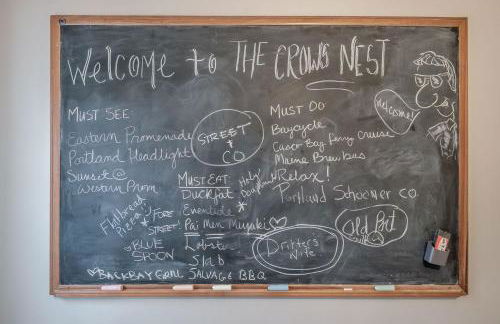 Welcome to THE CROWS NEST
MUST SEE
Eastern Promenade
Portland Headlight
Sunset @
Western Prom
STREET
& CO
MUST DO
Baycycle
Casco Bay ferry cruise
Maine Brew bus
Relax!
Portland Schooner CO.
Welcome!
MUST EAT
Duckfat
Eventide *
Pai Men Miyake
Lobster
Slab
SALVAGE BBQ
Holy
Donut
Flatbread
Pizza
FORE
STREET
BLUE
SPOON
BACKBAY GRILL
Drifters
Wife
Old Port